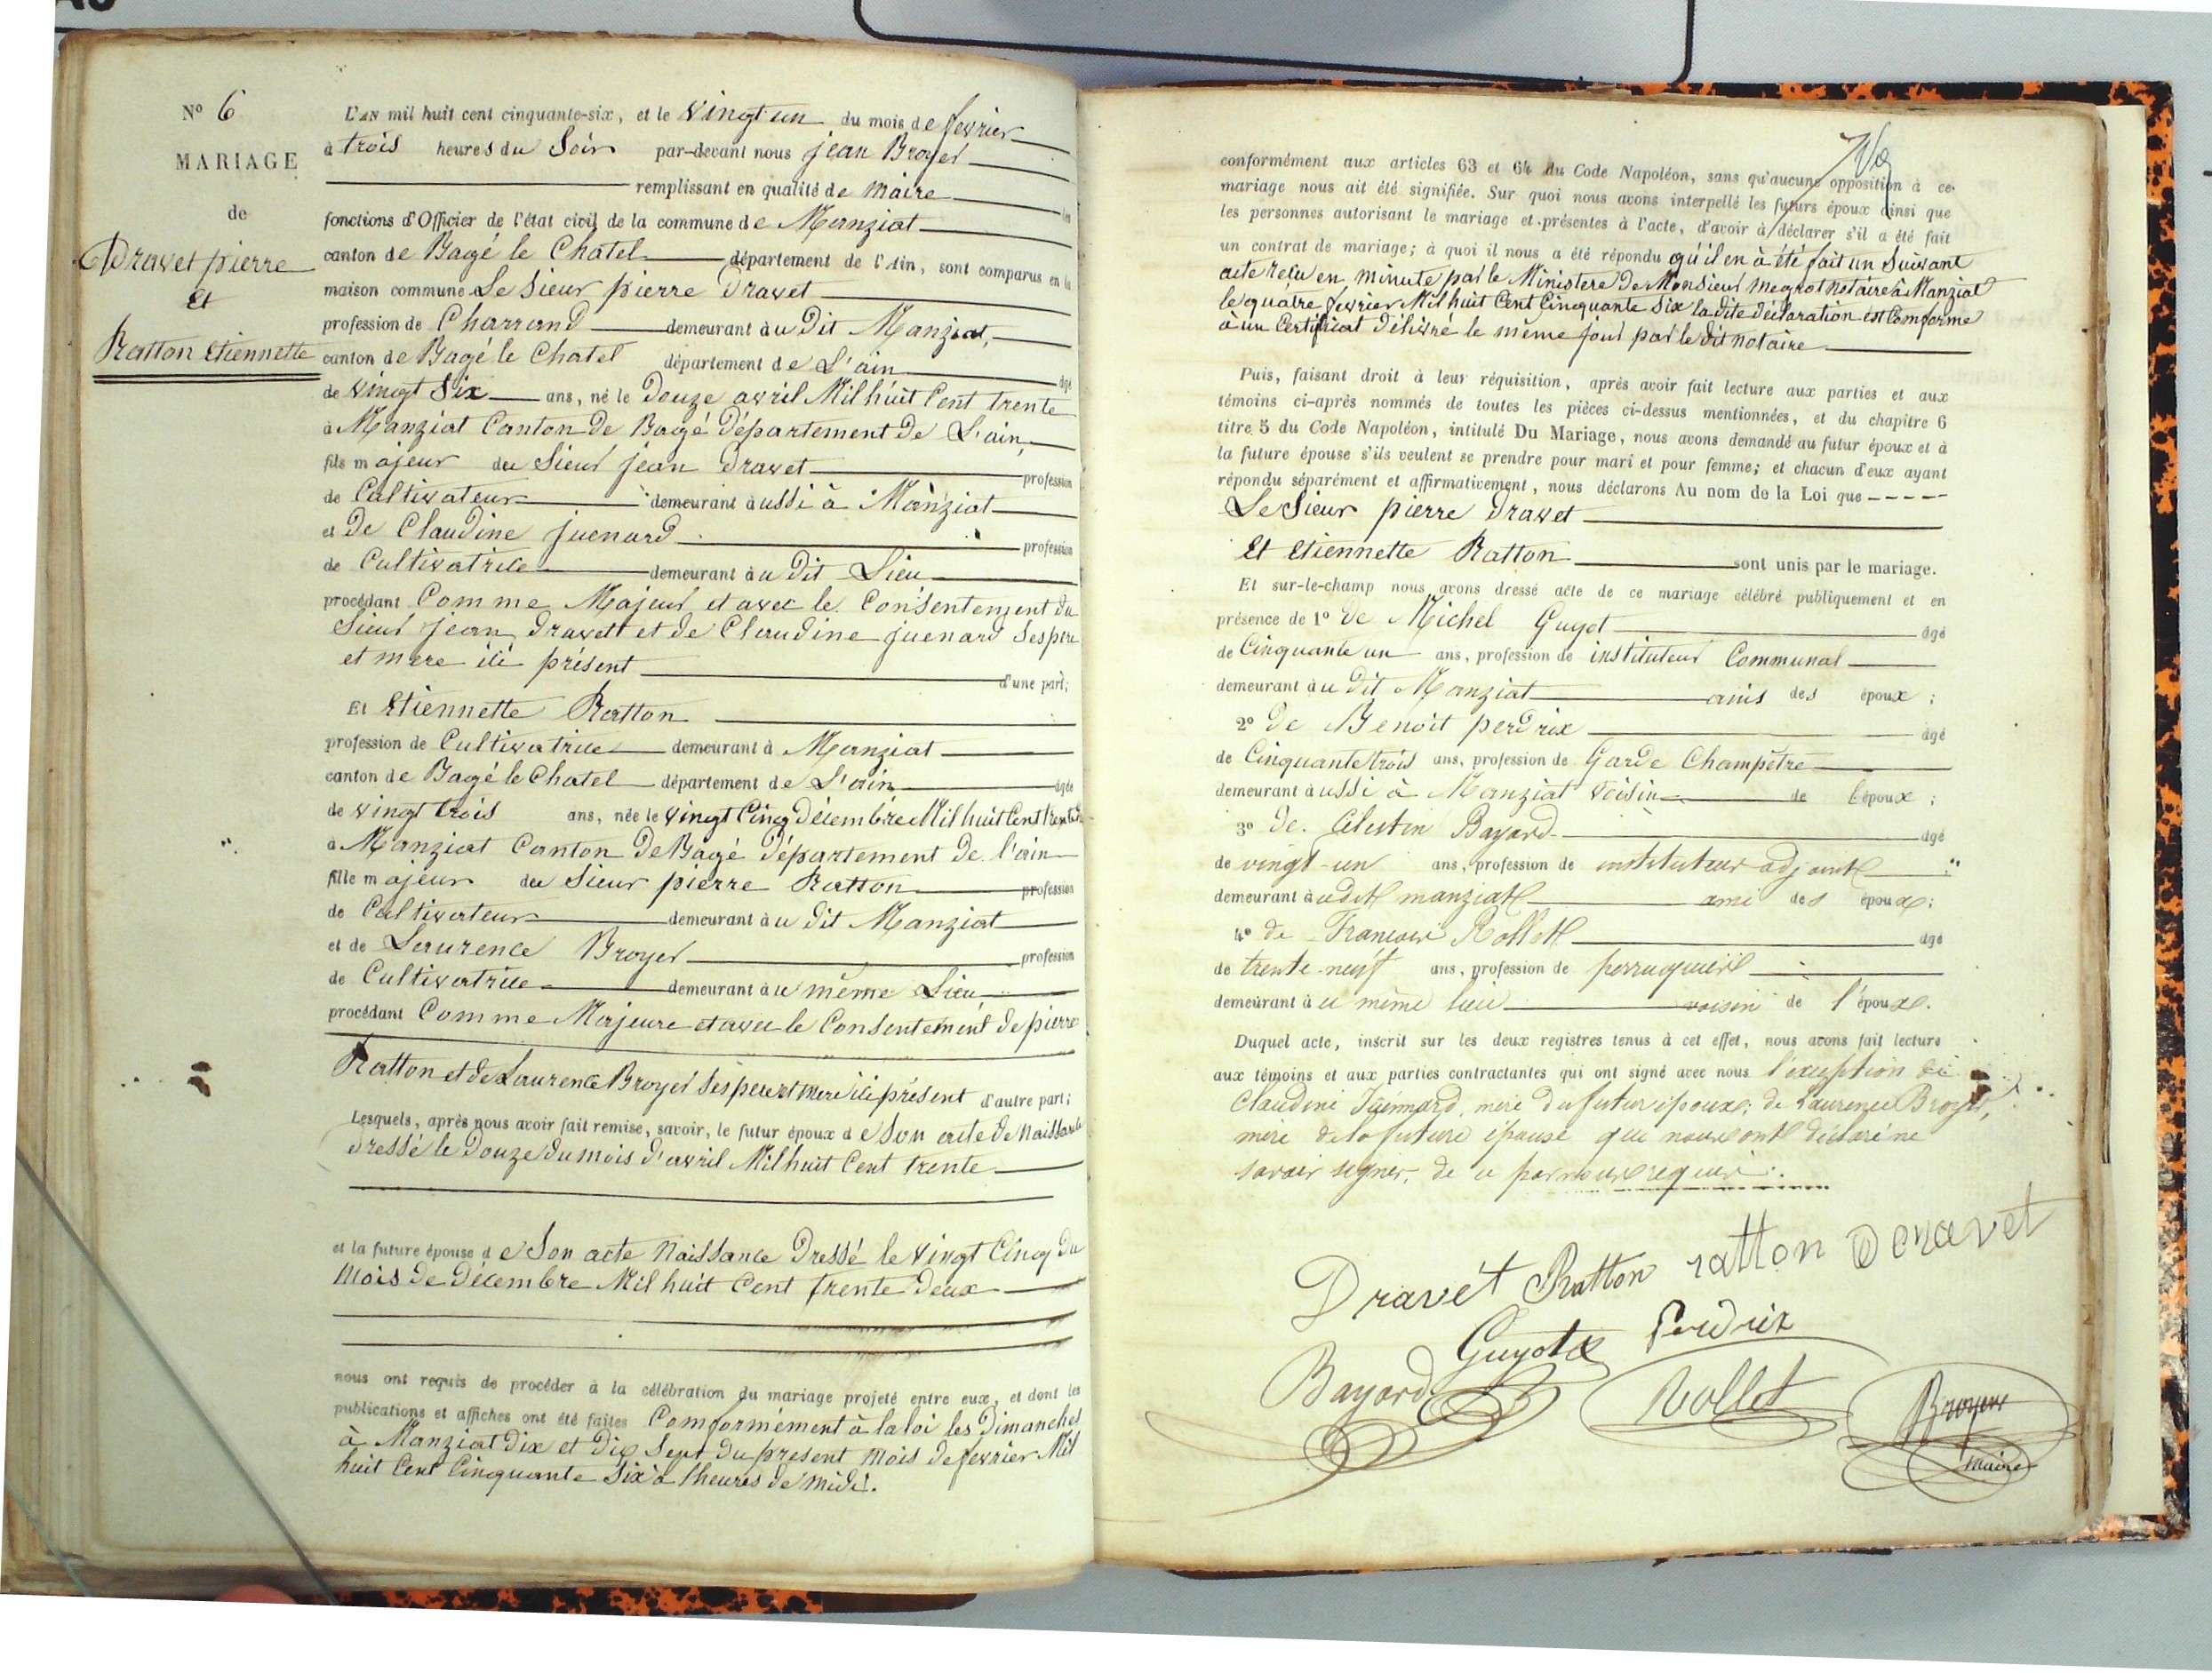 Nº 6
MARIAGE
de
Dravet pierre
Et
Ratton Etiennette
L'AN mil huit cent cinquante-six, et le vingt un du mois de fevrier
à trois heures du Soir par-devant nous jean Broyer
remplissant en qualité de Maire les
fonctions d'Officier de l'état civil de la commune de Manziat
canton de Bagé le Chatel département de l'Ain, sont comparus en la
maison commune Le Sieur pierre Dravet
profession de Charrand demeurant au Dit Manziat,
canton de Bagé le Chatel département de L'ain âgé
de vingt Six ans, né le Douze avril Mil huit Cent trente
à Manziat Canton De Bagé Département De L'ain,
fils majeur du Sieur jean Dravet profession
de Cultivateur demeurant aussi à Manziat
et De Claudine juenard profession
de Cultivatrice demeurant au Dit Lieu
procédant Comme Majeur et avec le Consentement du
Sieur jean Dravett et de Claudine juenard Ses pere
et mere ici présent d'une part;
Et Etiennette Ratton
profession de Cultivatrice demeurant à Manziat
canton de Bagé le Chatel département de L'ain âgée
de vingt trois ans, née le vingt Cinq Décembre Mil huit Cent trente
à Manziat Canton De Bagé Département de l'ain
fille majeur du Sieur pierre Ratton profession
de Cultivateur demeurant au Dit Manziat
et de Laurence Broyer profession
de Cultivatrice demeurant au même Lieu
procédant Comme Majeure et avec le Consentement De pierre
Ratton et de Laurence Broyer Ses pere et mere ici présent d'autre part;
Lesquels, après nous avoir fait remise, savoir, le futur époux de Son acte de Naissance
Dressé le Douze du mois d'avril Mil huit Cent trente
et la future épouse de Son acte Naissance Dressé le vingt Cinq Du
Mois de Décembre Mil huit Cent trente Deux
nous ont requis de procéder à la célébration du mariage projeté entre eux, et dont les
publications et affiches ont été faites Comformément à la loi les Dimanches
à Manziat Dix et Dix Sept Du present Mois de fevrier Mil
huit Cent Cinquante Six à heures de midi.
conformément aux articles 63 et 64 du Code Napoléon, sans qu'aucune opposition à ce
mariage nous ait été signifiée. Sur quoi nous avons interpellé les futurs époux ainsi que
les personnes autorisant le mariage et présentes à l'acte, d'avoir à déclarer s'il a été fait
un contrat de mariage; à quoi il nous a été répondu qu'il en à été fait un Suivant
acte reçu en minute par le Ministere De Monsieur notaire à Manziat
le quatre fevrier Mil huit Cent Cinquante Six la dite déclaration est Comforme
à un Certificat Délivré le même jour par le Dit notaire
Puis, faisant droit à leur réquisition, après avoir fait lecture aux parties et aux
témoins ci-après nommés de toutes les pièces ci-dessus mentionnées, et du chapitre 6
titre 5 du Code Napoléon, intitulé Du Mariage, nous avons demandé au futur époux et à
la future épouse s'ils veulent se prendre pour mari et pour femme; et chacun d'eux ayant
répondu séparément et affirmativement, nous déclarons Au nom de la Loi que
Le Sieur pierre Dravet
Et Etiennette Ratton sont unis par le mariage.
Et sur-le-champ nous avons dressé acte de ce mariage célébré publiquement et en
présence de 1º De Michel Guyot âgé
de Cinquante un ans, profession de instituteur Communal
demeurant au Dit Manziat amis des époux;
2º De Benoit perdrix âgé
de Cinquante trois ans, profession de Garde Champêtre
demeurant aussi à Manziat voisin de l'époux;
3º De Celestin Bayard âgé
de vingt-un ans, profession de instituteur adjoint
demeurant audit manziat ami des époux;
4º de François Rollet âgé
de trente-neuf ans, profession de perruquier
demeurant au même lieu voisin de l'époux.
Duquel acte, inscrit sur les deux registres tenus à cet effet, nous avons fait lecture
aux témoins et aux parties contractantes qui ont signé avec nous l'exception de
Claudine Juennard, mère du futur époux; de Laurence Broyer,
mère de la future épouse qui nous ont déclaré ne
savoir signer, de ce par nous requis.
Dravet Ratton ratton Deravet
Guyot Perdrix
Bayard Rollet Broyer
maire